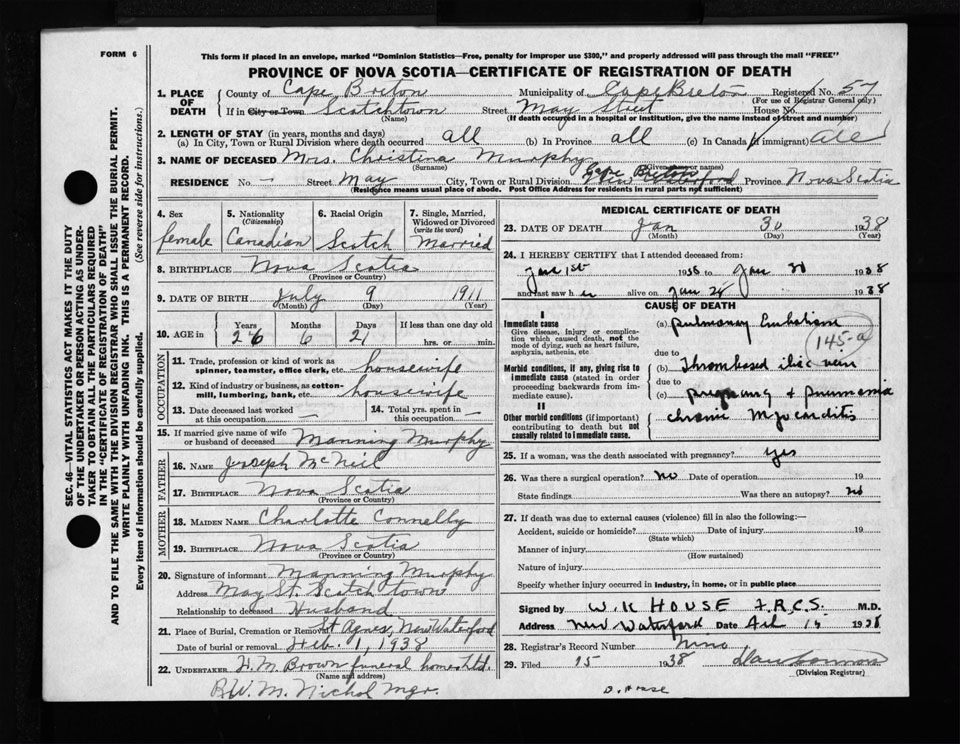 FORM 6
This form if placed in an envelope, marked "Dominion Statistics—Free, penalty for improper use $300," and properly addressed will pass through the mail "FREE"
PROVINCE OF NOVA SCOTIA—CERTIFICATE OF REGISTRATION OF DEATH
1. PLACE OF DEATH
County of Cape Breton Municipality of Cape Breton Registered No. 57
(For use of Registrar General only)
If in City or Town Scotchtown Street May Street House No.
(Name) (If death occurred in a hospital or institution, give the name instead of street and number)
2. LENGTH OF STAY (in years, months and days)
(a) In City, Town or Rural Division where death occurred all (b) In Province all (c) In Canada (if immigrant) all
3. NAME OF DECEASED Mrs. Christina Murphy
(Surname) (Given name or names)
RESIDENCE No. — Street May City, Town or Rural Division Cape Breton New Waterford Province Nova Scotia
(Residence means usual place of abode. Post Office Address for residents in rural parts not sufficient)
4. Sex female
5. Nationality (Citizenship) Canadian
6. Racial Origin Scotch
7. Single, Married, Widowed or Divorced (write the word) Married
8. BIRTHPLACE Nova Scotia
(Province or Country)
9. DATE OF BIRTH July 9 1911
(Month) (Day) (Year)
10. AGE in Years 26 Months 6 Days 21 If less than one day old hrs. or min.
OCCUPATION
11. Trade, profession or kind of work as spinner, teamster, office clerk, etc. housewife
12. Kind of industry or business, as cotton-mill, lumbering, bank, etc. housewife
13. Date deceased last worked at this occupation —
14. Total yrs. spent in this occupation —
15. If married give name of wife or husband of deceased Manning Murphy
FATHER
16. NAME Joseph McNeil
17. BIRTHPLACE Nova Scotia
(Province or Country)
MOTHER
18. MAIDEN NAME Charlotte Connelly
19. BIRTHPLACE Nova Scotia
(Province or Country)
20. Signature of informant Manning Murphy
Address May St. Scotch town
Relationship to deceased Husband
21. Place of Burial, Cremation or Removal St Agnes, New Waterford
Date of burial or removal Feb. 1, 1938
22. UNDERTAKER H. M. Brown funeral homes Ltd.
(Name and address)
R.W. M. Nichol Mgr.
MEDICAL CERTIFICATE OF DEATH
23. DATE OF DEATH Jan 30 1938
(Month) (Day) (Year)
24. I HEREBY CERTIFY that I attended deceased from:
Jan 1st 1938 to Jan 30 1938
and last saw h er alive on Jan 29 1938
CAUSE OF DEATH
I
Immediate cause
Give disease, injury or complication which caused death, not the mode of dying, such as heart failure, asphyxia, asthenia, etc
(a) Pulmonary Embolism
145-a
due to
Morbid conditions, if any, giving rise to immediate cause (stated in order proceeding backwards from immediate cause).
(b) Thrombosed iliac vein
due to
(c) pregnancy & Pneumonia
II
Other morbid conditions (if important) contributing to death but not causally related to immediate cause.
chronic Myocarditis
25. If a woman, was the death associated with pregnancy? yes
26. Was there a surgical operation? no Date of operation 19
State findings Was there an autopsy? no
27. If death was due to external causes (violence) fill in also the following:—
Accident, suicide or homicide? Date of injury 19
(State which)
Manner of injury
(How sustained)
Nature of injury
Specify whether injury occurred in industry, in home, or in public place
Signed by W. K HOUSE F.R.C.S. M.D.
Address New Waterford Date Feb 14 1938
28. Registrar's Record Number Nine
29. Filed 15 1938
(Division Registrar)
D. House
SEC. 46—VITAL STATISTICS ACT MAKES IT THE DUTY OF THE UNDERTAKER OR PERSON ACTING AS UNDERTAKER TO OBTAIN ALL THE PARTICULARS REQUIRED IN THE "CERTIFICATE OF REGISTRATION OF DEATH"
AND TO FILE THE SAME WITH THE DIVISION REGISTRAR WHO SHALL ISSUE THE BURIAL PERMIT.
WRITE PLAINLY WITH UNFADING INK. THIS IS A PERMANENT RECORD.
Every item of information should be carefully supplied. (See reverse side for instructions.)